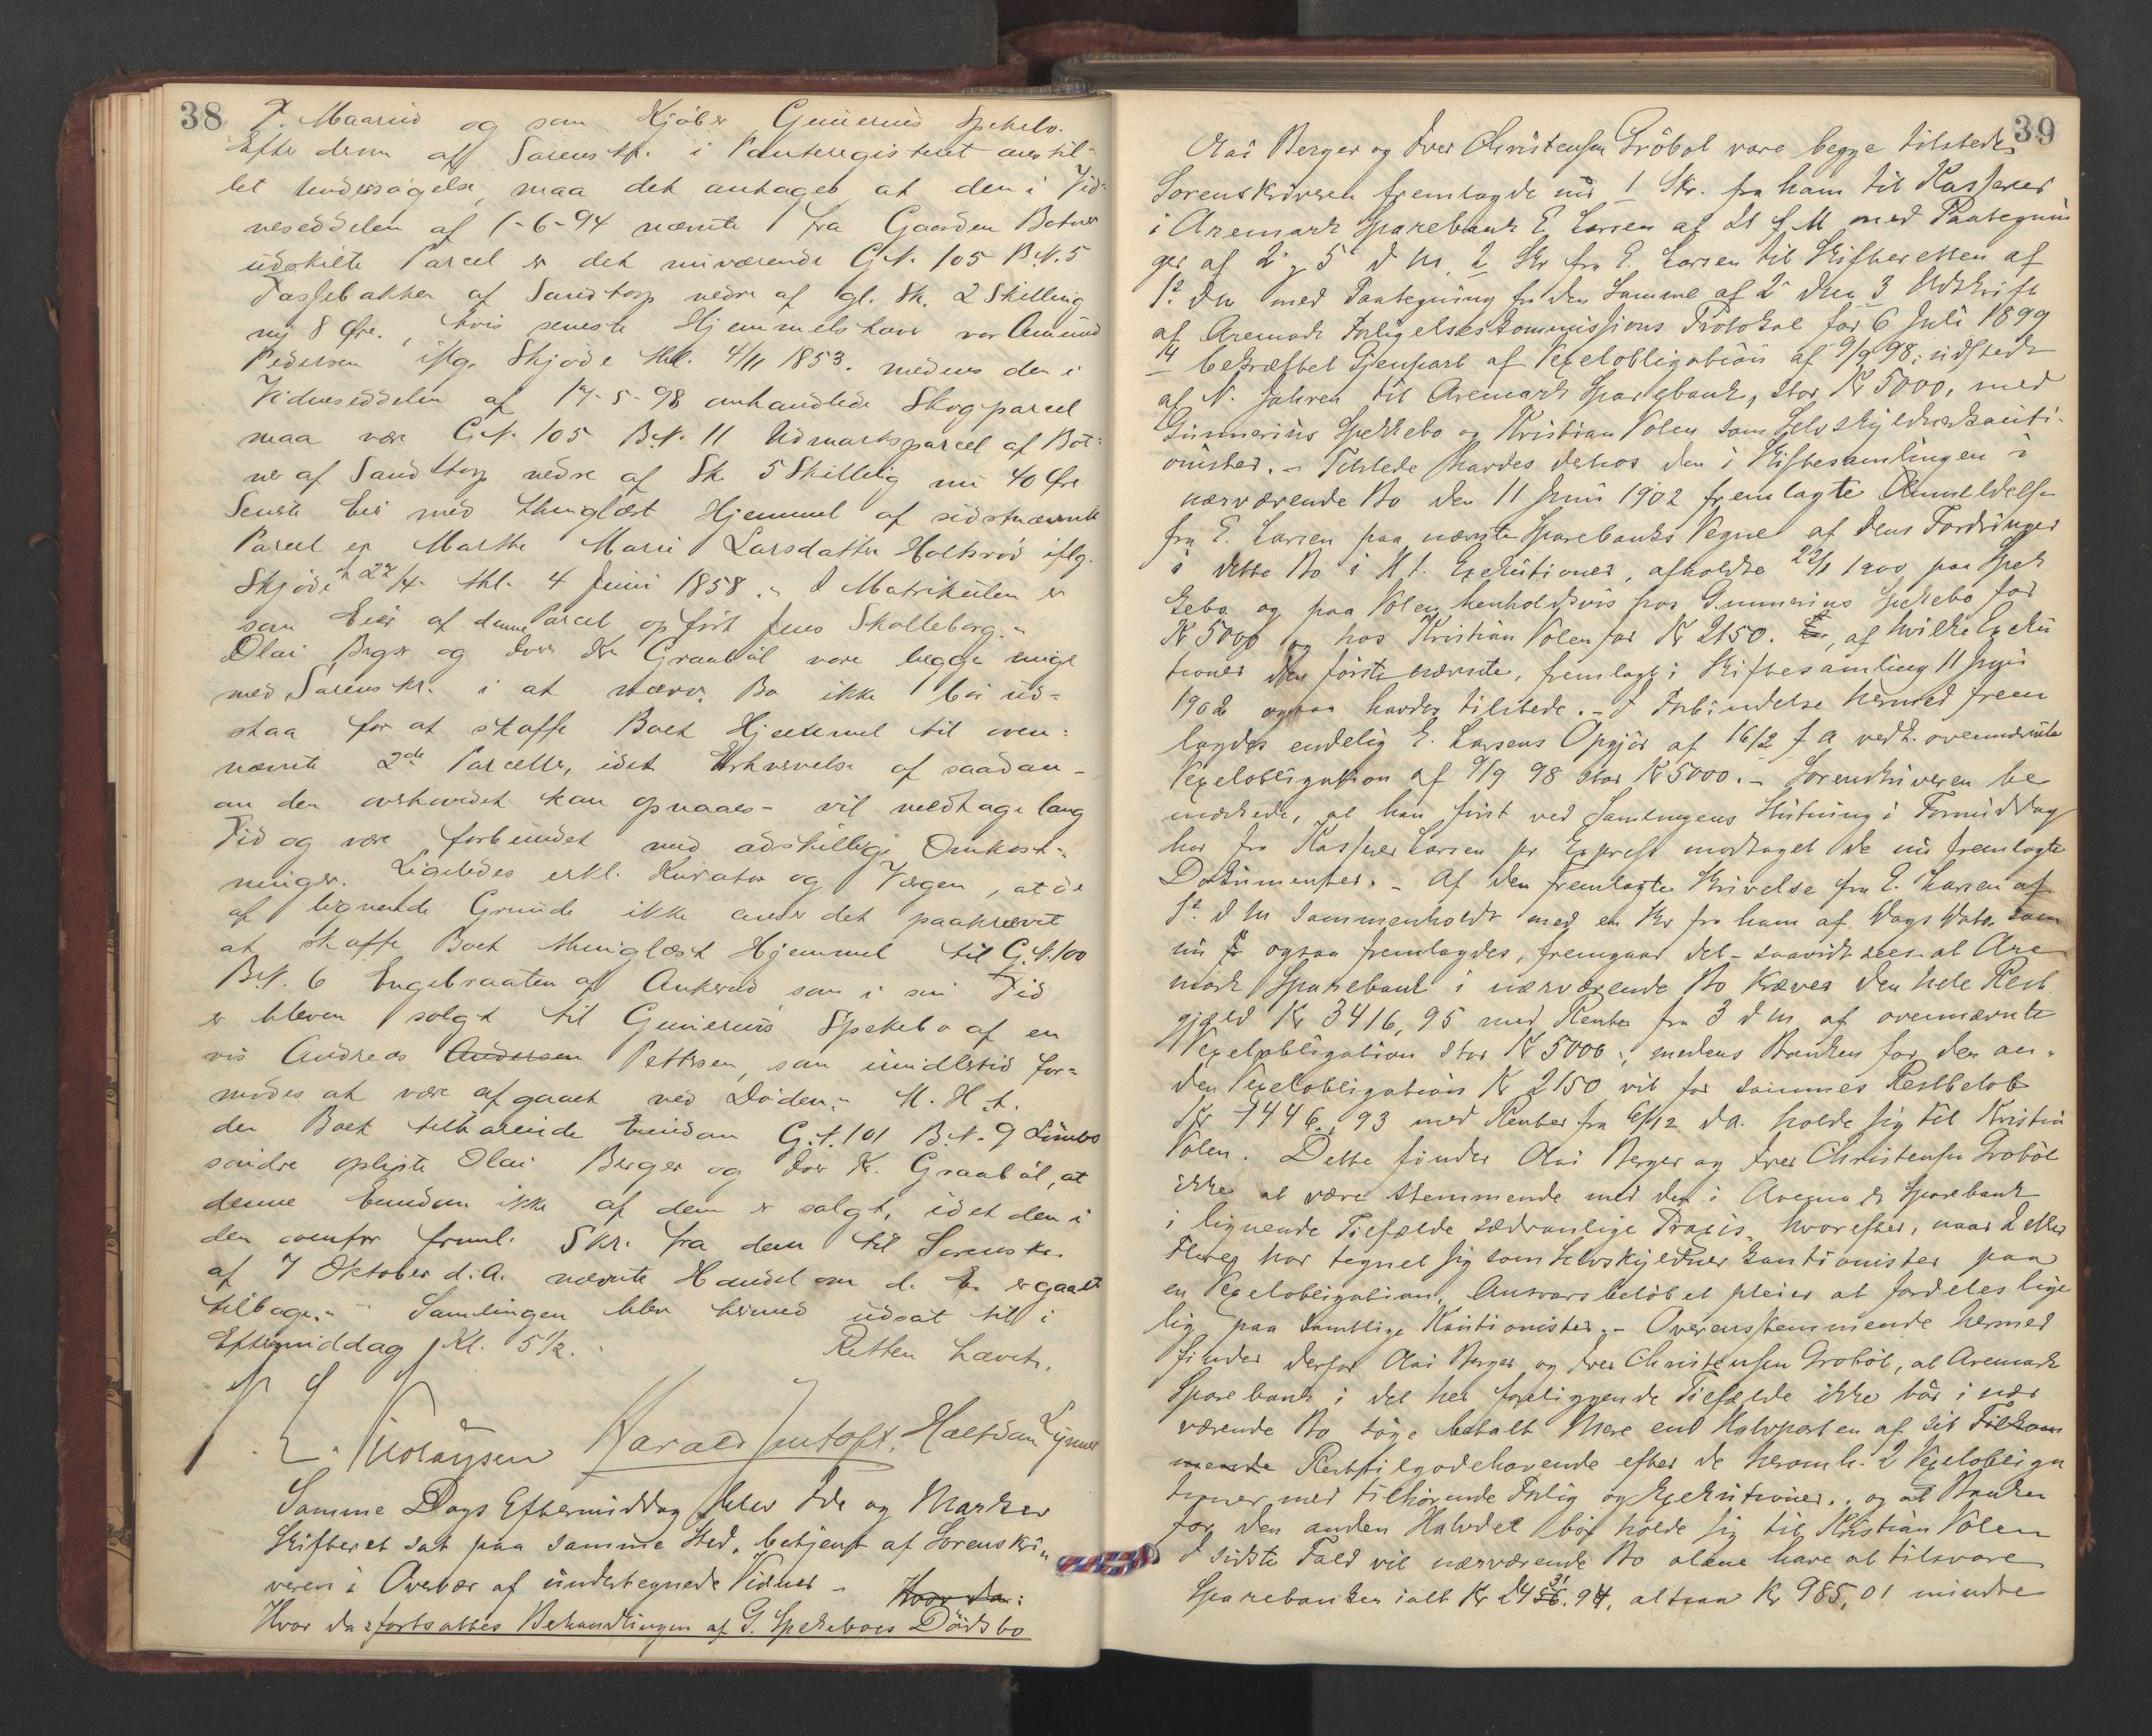 38
J. Maarud og som Kjøber Gunerius Spekebo.
Efter denne af Sorenskr. i Panteregisteret anstil-
let Undersøgelse, maa det antages at den i Vid-
neseddelen af 1-6-94 nævnte fra Gaarden Botner
udskilte Parcel er det nuværende G.N. 105 B.N. 5
af Sandtorp nedre af gl. Sk. 2 Skilling
ny 8 Øre., hvis seneste Hjemmelshaver var Amund
Pedersen iflg. Skjøde thl. 4/11 1853. medens den i
Vidneseddelen af 17-5-98 omhandlede Skogparcel
maa være G.N. 105 B.N. 11 Udmarksparcel af Bot-
ner af Sandtorp nedre af Sk. 5 Skilling nu 40 Øre
Seneste Eier med thinglæst Hjemmel af sidstnævnte
Parcel er Marthe Marie Larsdatter Holtsrød iflg.
Skjøde 27/4 thl. 4 Juni 1858. – I Matrikulen er
som Eier af denne Parcel opført Jens Skolleborg. –
Olai Berger og Iver Kr. Graabøl vare begge enige
med Sorenskr. i at nærv. Bo ikke bør ud-
staa for at skaffe Boet Hjemmel til oven-
nævnte 2de Parceller, idet Erhvervelse af saadan –
om den overhovedet kan opnaaes – vil medtage lang
Tid og være forbundet med adskillige Omkost-
ninger. Ligeledes erkl. Kurator og Vergen, at de
af lignende Grunde ikke anser det paakrævet
at skaffe Boet thinglæst Hjemmel til G.N. 100
B.N. 6 Engebraaten af Ankerud som i sin Tid
er bleven solgt til Gunerius Spekebo af en
vis Andreas Andersen Pettersen, som imidlertid for-
modes at være afgaaet ved Døden. – M. H. t.
den Boet tilhørende Eiendom G.N. 101 B.N. 9
søndre oplyste Olai Berger og Iver Kr. Graabøl, at
denne Eiendom ikke af dem er solgt, idet den i
den ovenfor freml. Skr. fra dem til Sorenskr.
af 7 Oktober d. A. nævnte Handel om d. E. er gaaet
tilbage. – Samlingen blev hermed udsat til i
Eftermiddag Kl. 5 1/2. Retten hævet.
Harald Halfdan
Samme Dags Eftermiddag blev Ide og Marker
Skifteret sat paa samme Sted, betjent af Sorenskri-
veren i Overvær af undertegnede Vidner – Hvor da:
Hvor da: fortsattes Behandlingen af G. Spekeboes Dødsbo
39
Olai Berger og Iver Christensen Gröbøl vare begge tilstede.
Sorenskriveren fremlagde nu 1 Skr. fra ham til Kasserer
i Aremark Sparebank E. Larsen af 21 f. M. med Paategnin
ger af 2 og 5 d. M. 2 Skr fra E. Larsen til Skifteretten af
1. ds med Paategning fra den Samme af 2 dns 3 Udskrift
af Aremark Forligelseskommissions Protokol for 6 Juli 1899
4 bekræftet Gjenpart af Vexelobligation af 9/9 98, udstedt
af N. Johren til Aremark Sparebank, stor Kr 5000, med
Gunnerius Spekkebo og Kristian Volen som Selvskyldnerkauti-
onister. – Tilstede havdes derhos den i Skiftesamlingen i
nærværende Bo den 11 Juni 1902 fremlagte Anmeldelse
fra E. Larsen paa nævnte Sparebanks Vegne af dens Fordringer
i dette Bo i H. t. Exekutioner, afholdte 22/1 1900 paa Spek
kebo og paa Volen henholdsvis hos Gunnerius Spekebo for
Kr 5000 og hos Kristian Volen for Kr 2150. af hvilke Exeku
tioner den førstenævnte, fremlagt i Skiftesamling 11 Juni
1902 ogsaa havdes tilstede. – I Forbindelse hermed frem
lagdes endelig E. Larsens Opgjør af 16/2 f A vedk. ovennævnte
Vexelobligation af 9/9 98 stor Kr 5000. – Sorenskriveren be
mærkede, at han først ved Samlingens Slutning i Formiddag
har fra Kasserer Larsen pr Express modtaget de nu fremlagte
Dokumenter. – Af den fremlagte Skrivelse fra E. Larsen af
1. d M sammenholdt med en Skr fra ham af Dags Dato som
nu ogsaa fremlagdes, fremgaar det – saavidt sees – at Are
mark Sparebank i nærværende Bo kræver den hele Rest
gjæld Kr 3416,95 med Renter fra 3 d M af ovennævnte
Vexelobligation stor Kr 5000, medens Banken for den an-
den Vexelobligation Kr 2150 vil for sammes Restbeløb
Kr 1446,93 med Renter fra 6/12 d A. holde sig til Kristian
Volen. Dette finder Olai Berger og Iver Christensen Grobøl
ikke at være stemmende med den i Aremark Sparebank
i lignende Tilfælde sædvanlige Praxis, hvorefter, naar 2 eller
Flere har tegnet sig som Selvskyldnerkautionister paa
en Vexelobligation, Ansvarsbeløbet pleier at fordeles lige
lig paa samtlige Kautionister. – Overensstemmende hermed
finder derfor Olai Berger og Iver Christensen Grobøl, at Aremark
Sparebank i det her foreliggende Tilfælde ikke bør i nær
værende Bo søge betalt Mere end Halvparten af sit Tilkom
mende Resttilgodehavende efter de heromh. 2 Vexelobliga
tioner med tilhørende Forlig og Exekutioner, og at Banken
for den anden Halvdel bør holde sig til Kristian Volen
I sidste Fald vil nærværende Bo alene have at tilsvare
Sparebanken ialt Kr 2431.94, altsaa Kr 985,01 mindre